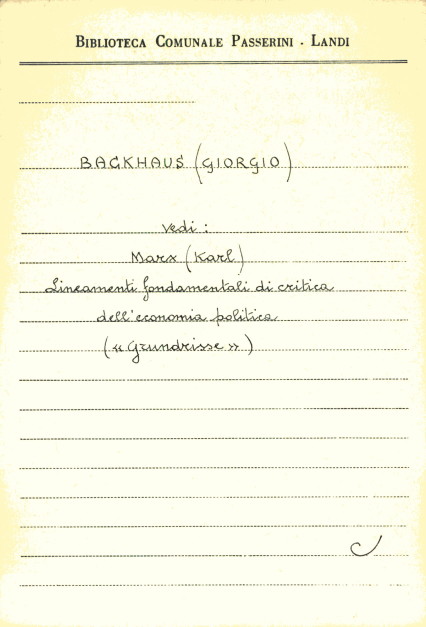 BIBLIOTECA COMUNALE PASSERINI - LANDI
BACKHAUS (GIORGIO)
Vedi :
Marx (Karl)
Lineamenti fondamentali di critica
dell'economia politica
(« Grundrisse »)